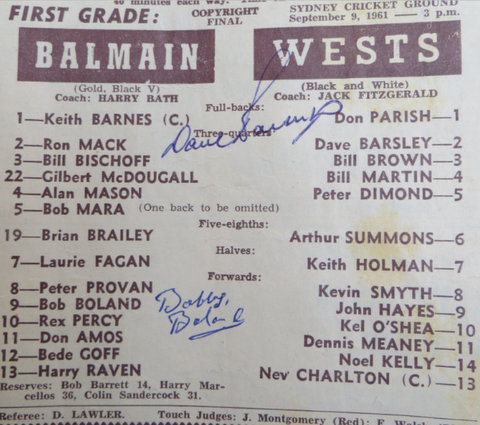 40 minutes each way.
FIRST GRADE:
COPYRIGHT
FINAL
SYDNEY CRICKET GROUND
September 9, 1961 — 3 p.m.
BALMAIN
WESTS
(Gold, Black V)
(Black and White)
Coach: HARRY BATH
Coach: JACK FITZGERALD
Full-backs:
1—Keith BARNES (C.)
Don PARISH—1
Three-quarters
Dave Barsley
2—Ron MACK
Dave BARSLEY—2
3—Bill BISCHOFF
Bill BROWN—3
22—Gilbert McDOUGALL
Bill MARTIN—4
4—Alan MASON
Peter DIMOND—5
5—Bob MARA (One back to be omitted)
Five-eighths:
19—Brian BRAILEY
Arthur SUMMONS—6
Halves:
7—Laurie FAGAN
Keith HOLMAN—7
Forwards:
8—Peter PROVAN
Kevin SMYTH—8
9—Bob BOLAND
Bobby
Boland
John HAYES—9
10—Rex PERCY
Kel O'SHEA—10
11—Don AMOS
Dennis MEANEY—11
12—Bede GOFF
Noel KELLY—14
13—Harry RAVEN
Nev CHARLTON (C.)—13
Reserves: Bob Barrett 14, Harry Mar-
cellos 36, Colin Sandercock 31.
Referee: D. LAWLER.
Touch Judges: J. Montgomery (Red); F.